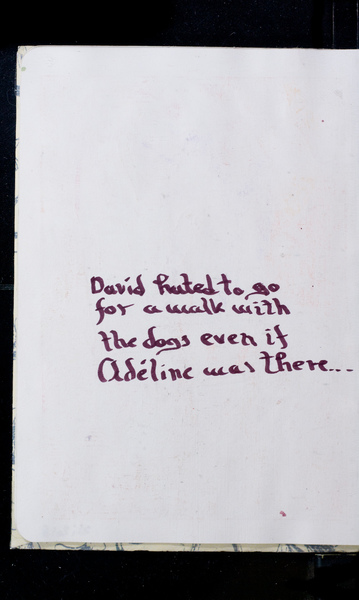 David hated to go
for a walk with
the dogs even if
Adéline was there...